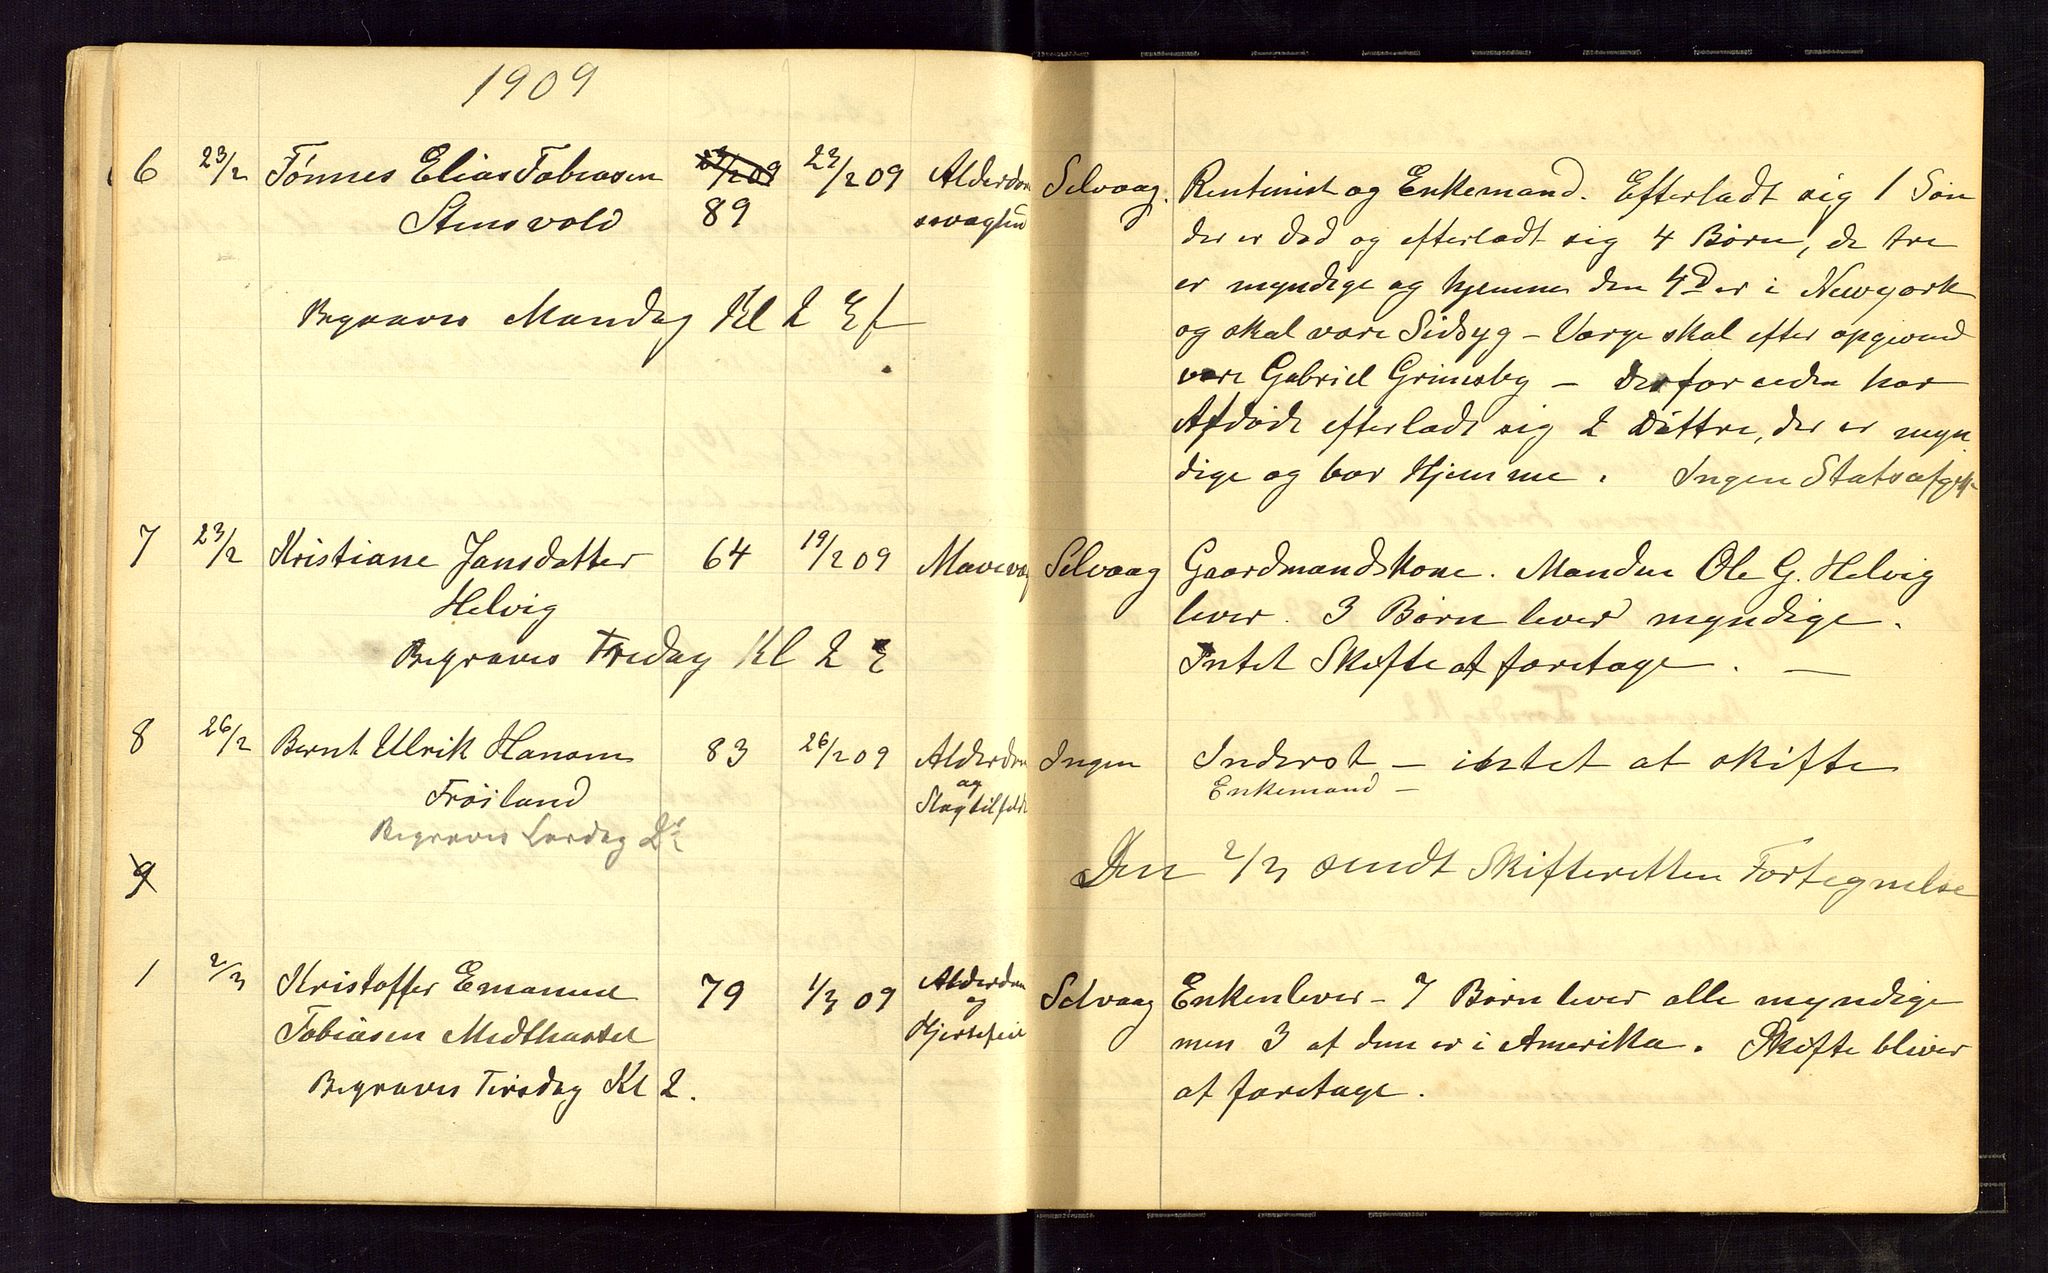 1909
6 23/2 Tønnes Elias Tobiasen 23/2 09 23/2 09 Alderdom Selvaag. Rentenist og Enkemand. Efterladt sig 1 Søn
Stensvold 89 svaghed der er død og efterladt sig 4 Børn, de tre
er myndige og hjemme den 4de er i Newyork
Begraves Mandag Kl 2 Ef og skal være Sidsyg – Værge skal efter opgivend
være Gabriel Grimsby – Desforuden har
Afdøde efterladt sig 2 Døttre, der er myn
dige og bor Hjemme. Ingen Statsafgift
7 23/2 Kristiane Jansdatter 64 19/2 09 Mave Selvaag Gaardmandskone. Manden Ole G. Helvig
Helvig lever. 3 Børn lever myndige.
Begraves Fredag Kl 2 E Intet Skifte at foretage. —
8 26/2 Bernt Ulrik Hansen 83 26/2 09 Alderdom Ingen Inderst – intet at skifte
Frøiland og Slagtilfelde Enkemand –
Begraves Lørdag
9 Den 2/3 sendt Skifteretten Fortegnelse
1 2/3 Kristoffer Emanuel 79 1/3 09 Alderdom Selvaag Enken lever – 7 Børn lever alle myndige
Tobiasen Midthassel og Hjertefeil men 3 af dem er i Amerika. Skifte bliver
Begraves Tirsdag Kl 2. at foretage.